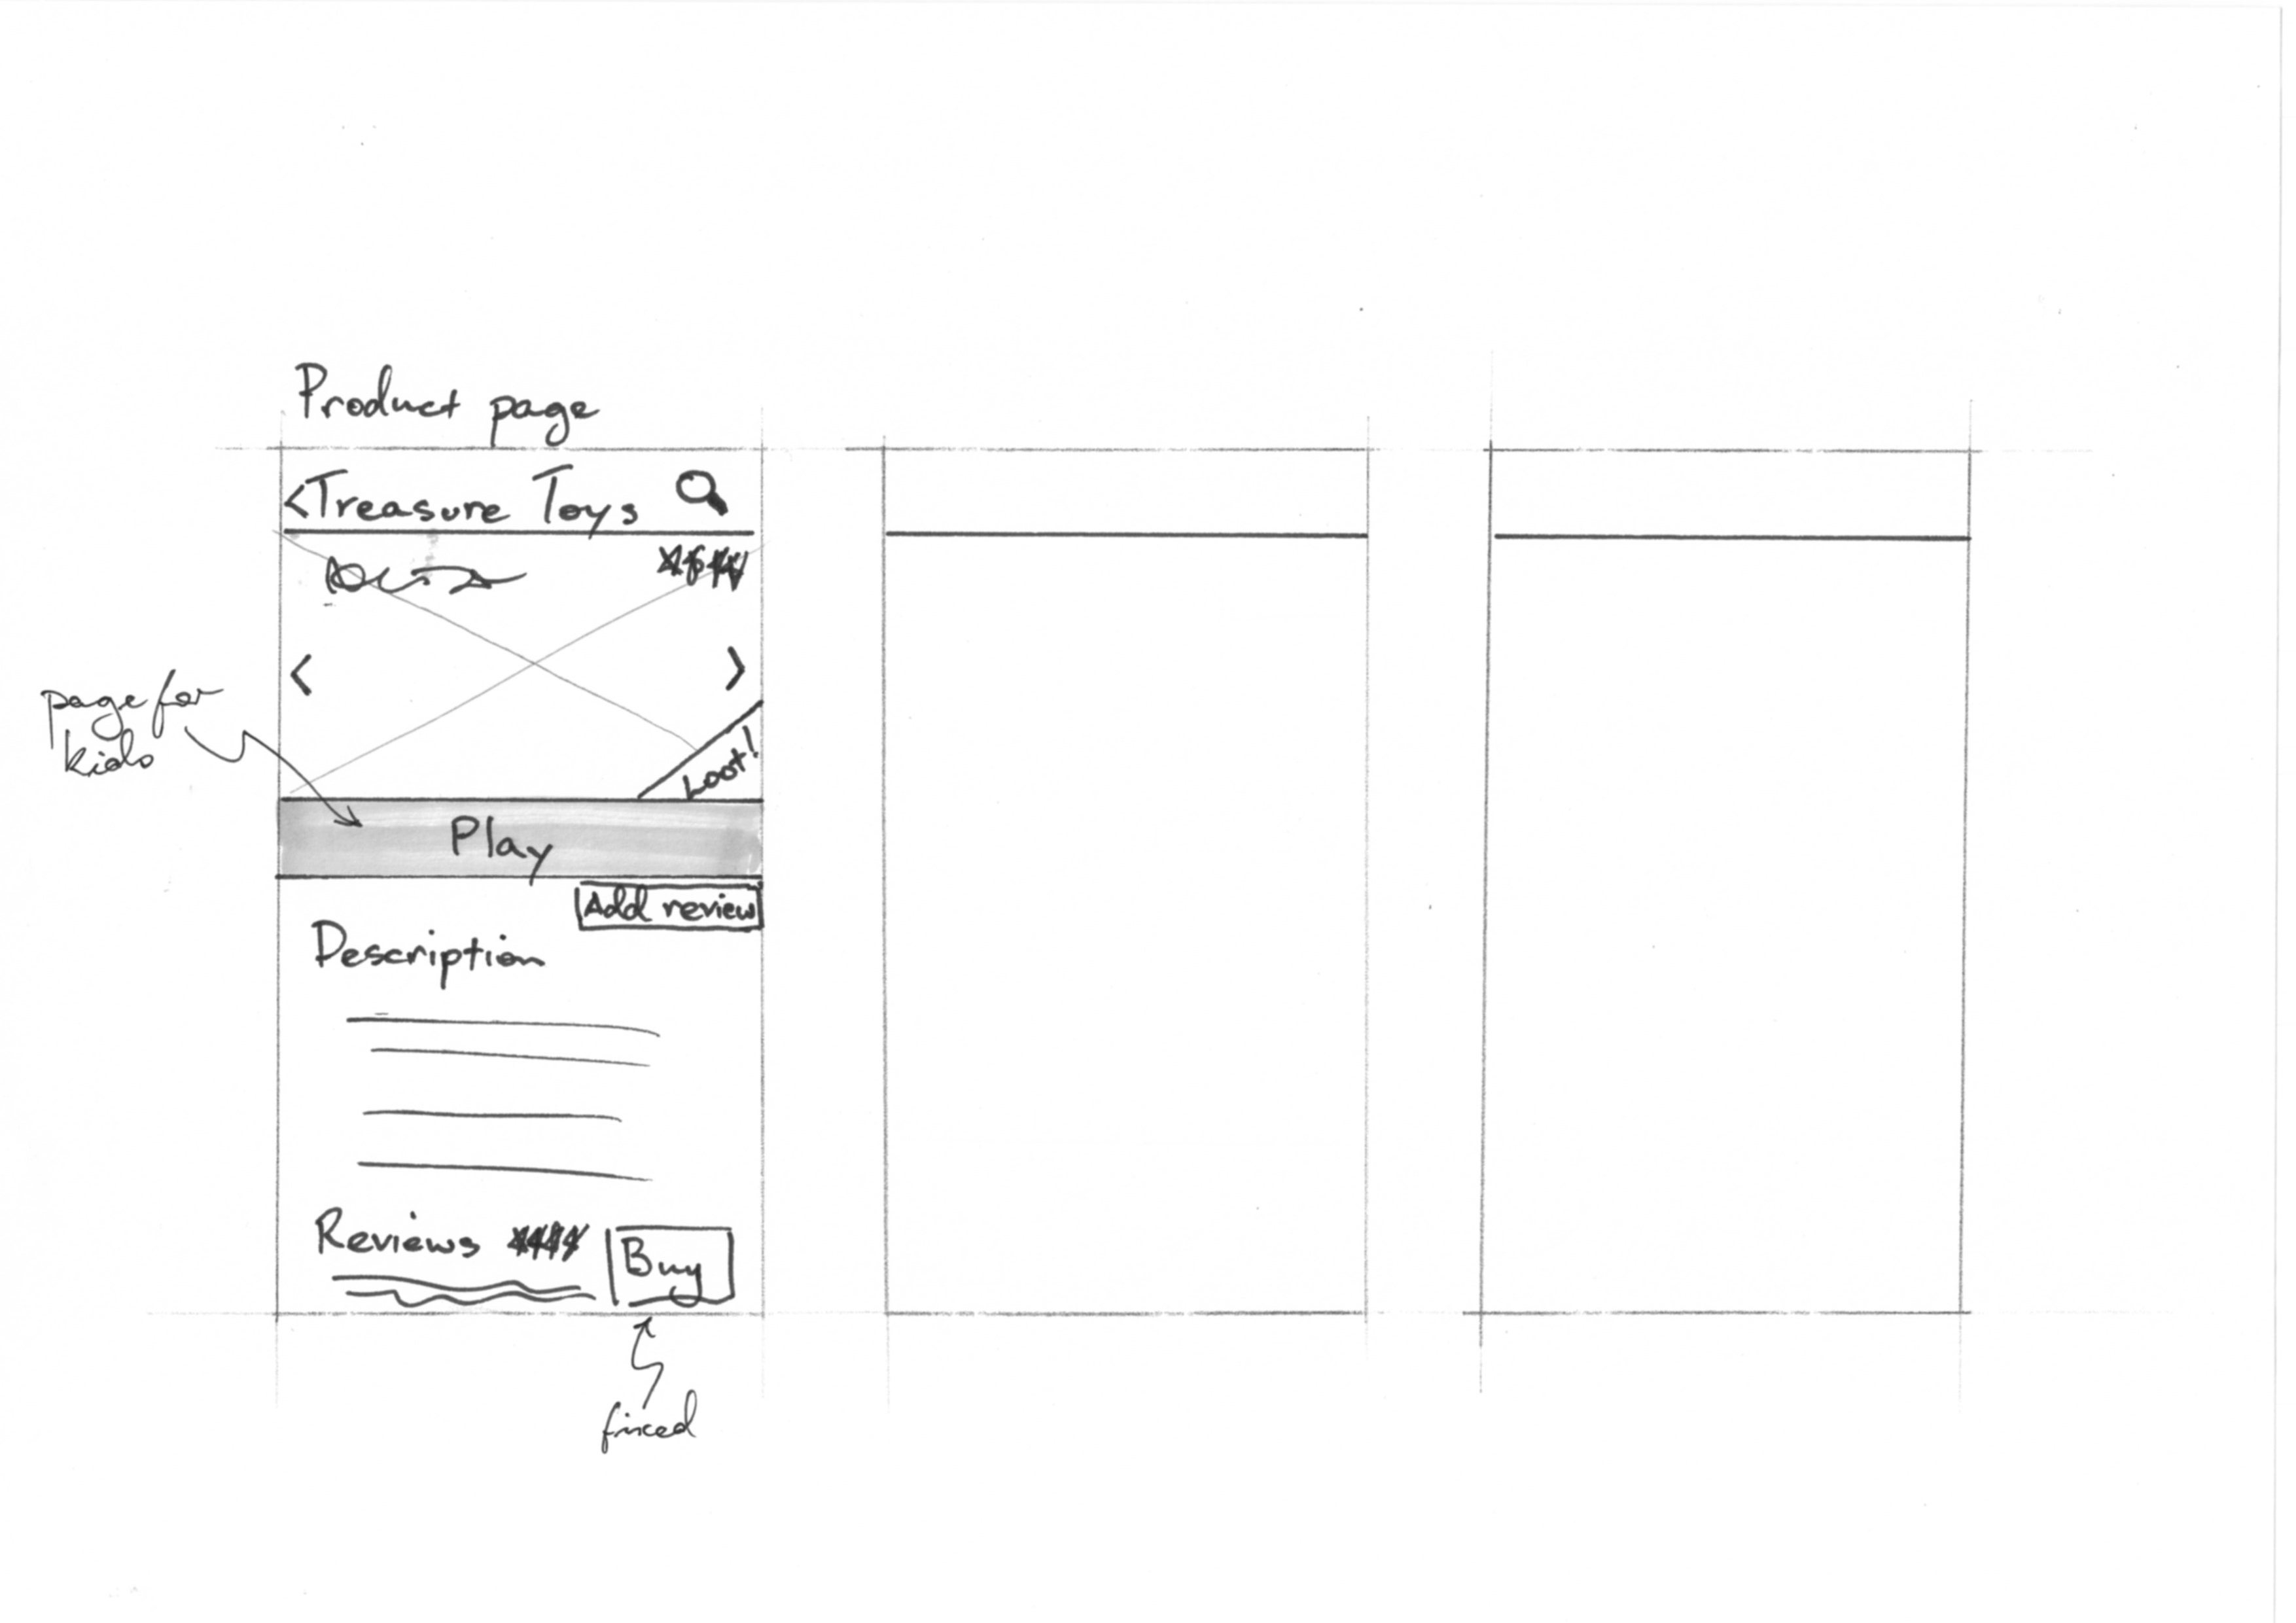 Product page
<Treasure Toys
< >
Loot!
page for
kids
Play
Add review
Description
Reviews
Buy
fixed